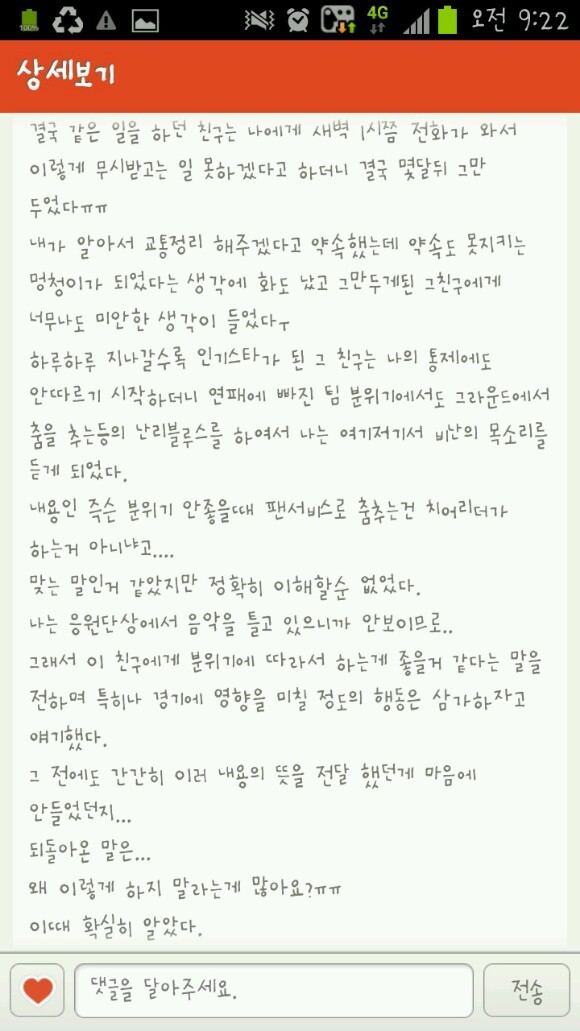 100%
4G
오전 9:22
상세보기
결국 같은 일을 하던 친구는 나에게 새벽 1시쯤 전화가 와서
이렇게 무시받고는 일 못하겠다고 하더니 결국 몇달뒤 그만
두었다ㅠㅠ
내가 알아서 교통정리 해주겠다고 약속했는데 약속도 못지키는
멍청이가 되었다는 생각에 화도 났고 그만두게된 그친구에게
너무나도 미안한 생각이 들었다ㅜ
하루하루 지나갈수록 인기스타가 된 그 친구는 나의 통제에도
안따르기 시작하더니 연패에 빠진 팀 분위기에서도 그라운드에서
춤을 추는등의 난리블루스를 하여서 나는 여기저기서 비난의 목소리를
듣게 되었다.
내용인 즉슨 분위기 안좋을때 팬서비스로 춤추는건 치어리더가
하는거 아니냐고....
맞는 말인거 같았지만 정확히 이해할순 없었다.
나는 응원단상에서 음악을 틀고 있으니까 안보이므로..
그래서 이 친구에게 분위기에 따라서 하는게 좋을거 같다는 말을
전하며 특히나 경기에 영향을 미칠 정도의 행동은 삼가하자고
얘기했다.
그 전에도 간간히 이러 내용의 뜻을 전달 했던게 마음에
안들었던지...
되돌아온 말은...
왜 이렇게 하지 말라는게 많아요?ㅠㅠ
이때 확실히 알았다.
댓글을 달아주세요.
전송